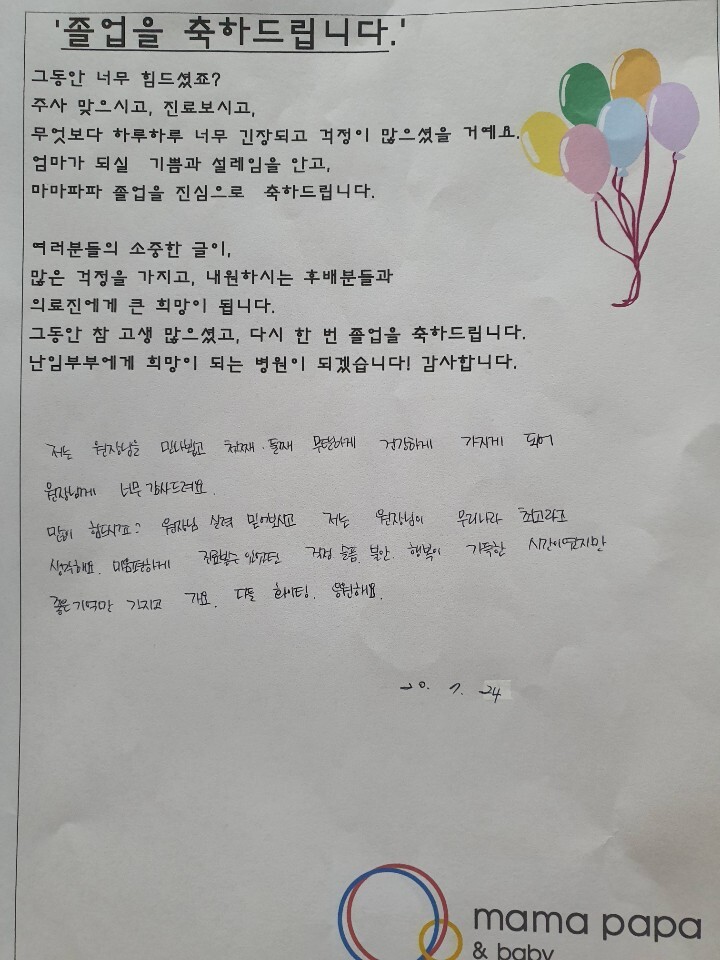 '졸업을 축하드립니다.'
그동안 너무 힘드셨죠?
주사 맞으시고, 진료보시고,
무엇보다 하루하루 너무 긴장되고 걱정이 많으셨을 거예요.
엄마가 되실 기쁨과 설레임을 안고,
마마파파 졸업을 진심으로 축하드립니다.
여러분들의 소중한 글이,
많은 걱정을 가지고, 내원하시는 후배분들과
의료진에게 큰 희망이 됩니다.
그동안 참 고생 많으셨고, 다시 한 번 졸업을 축하드립니다.
난임부부에게 희망이 되는 병원이 되겠습니다! 감사합니다.
저는 원장님을 만나뵙고 첫째. 둘째 무탈하게 건강하게 가지게 되어
원장님께 너무 감사드려요.
많이 힘드시죠? 원장님 실력 믿어보시고 저는 원장님이 우리나라 최고라고
생각해요. 마음편하게 진료볼수 있었던 걱정 슬픔. 불안. 행복이 가득한 시간이였지만
좋은기억만 가지고 가요. 다들 화이팅. 응원해요.
20. 7. 24
mama papa
& baby